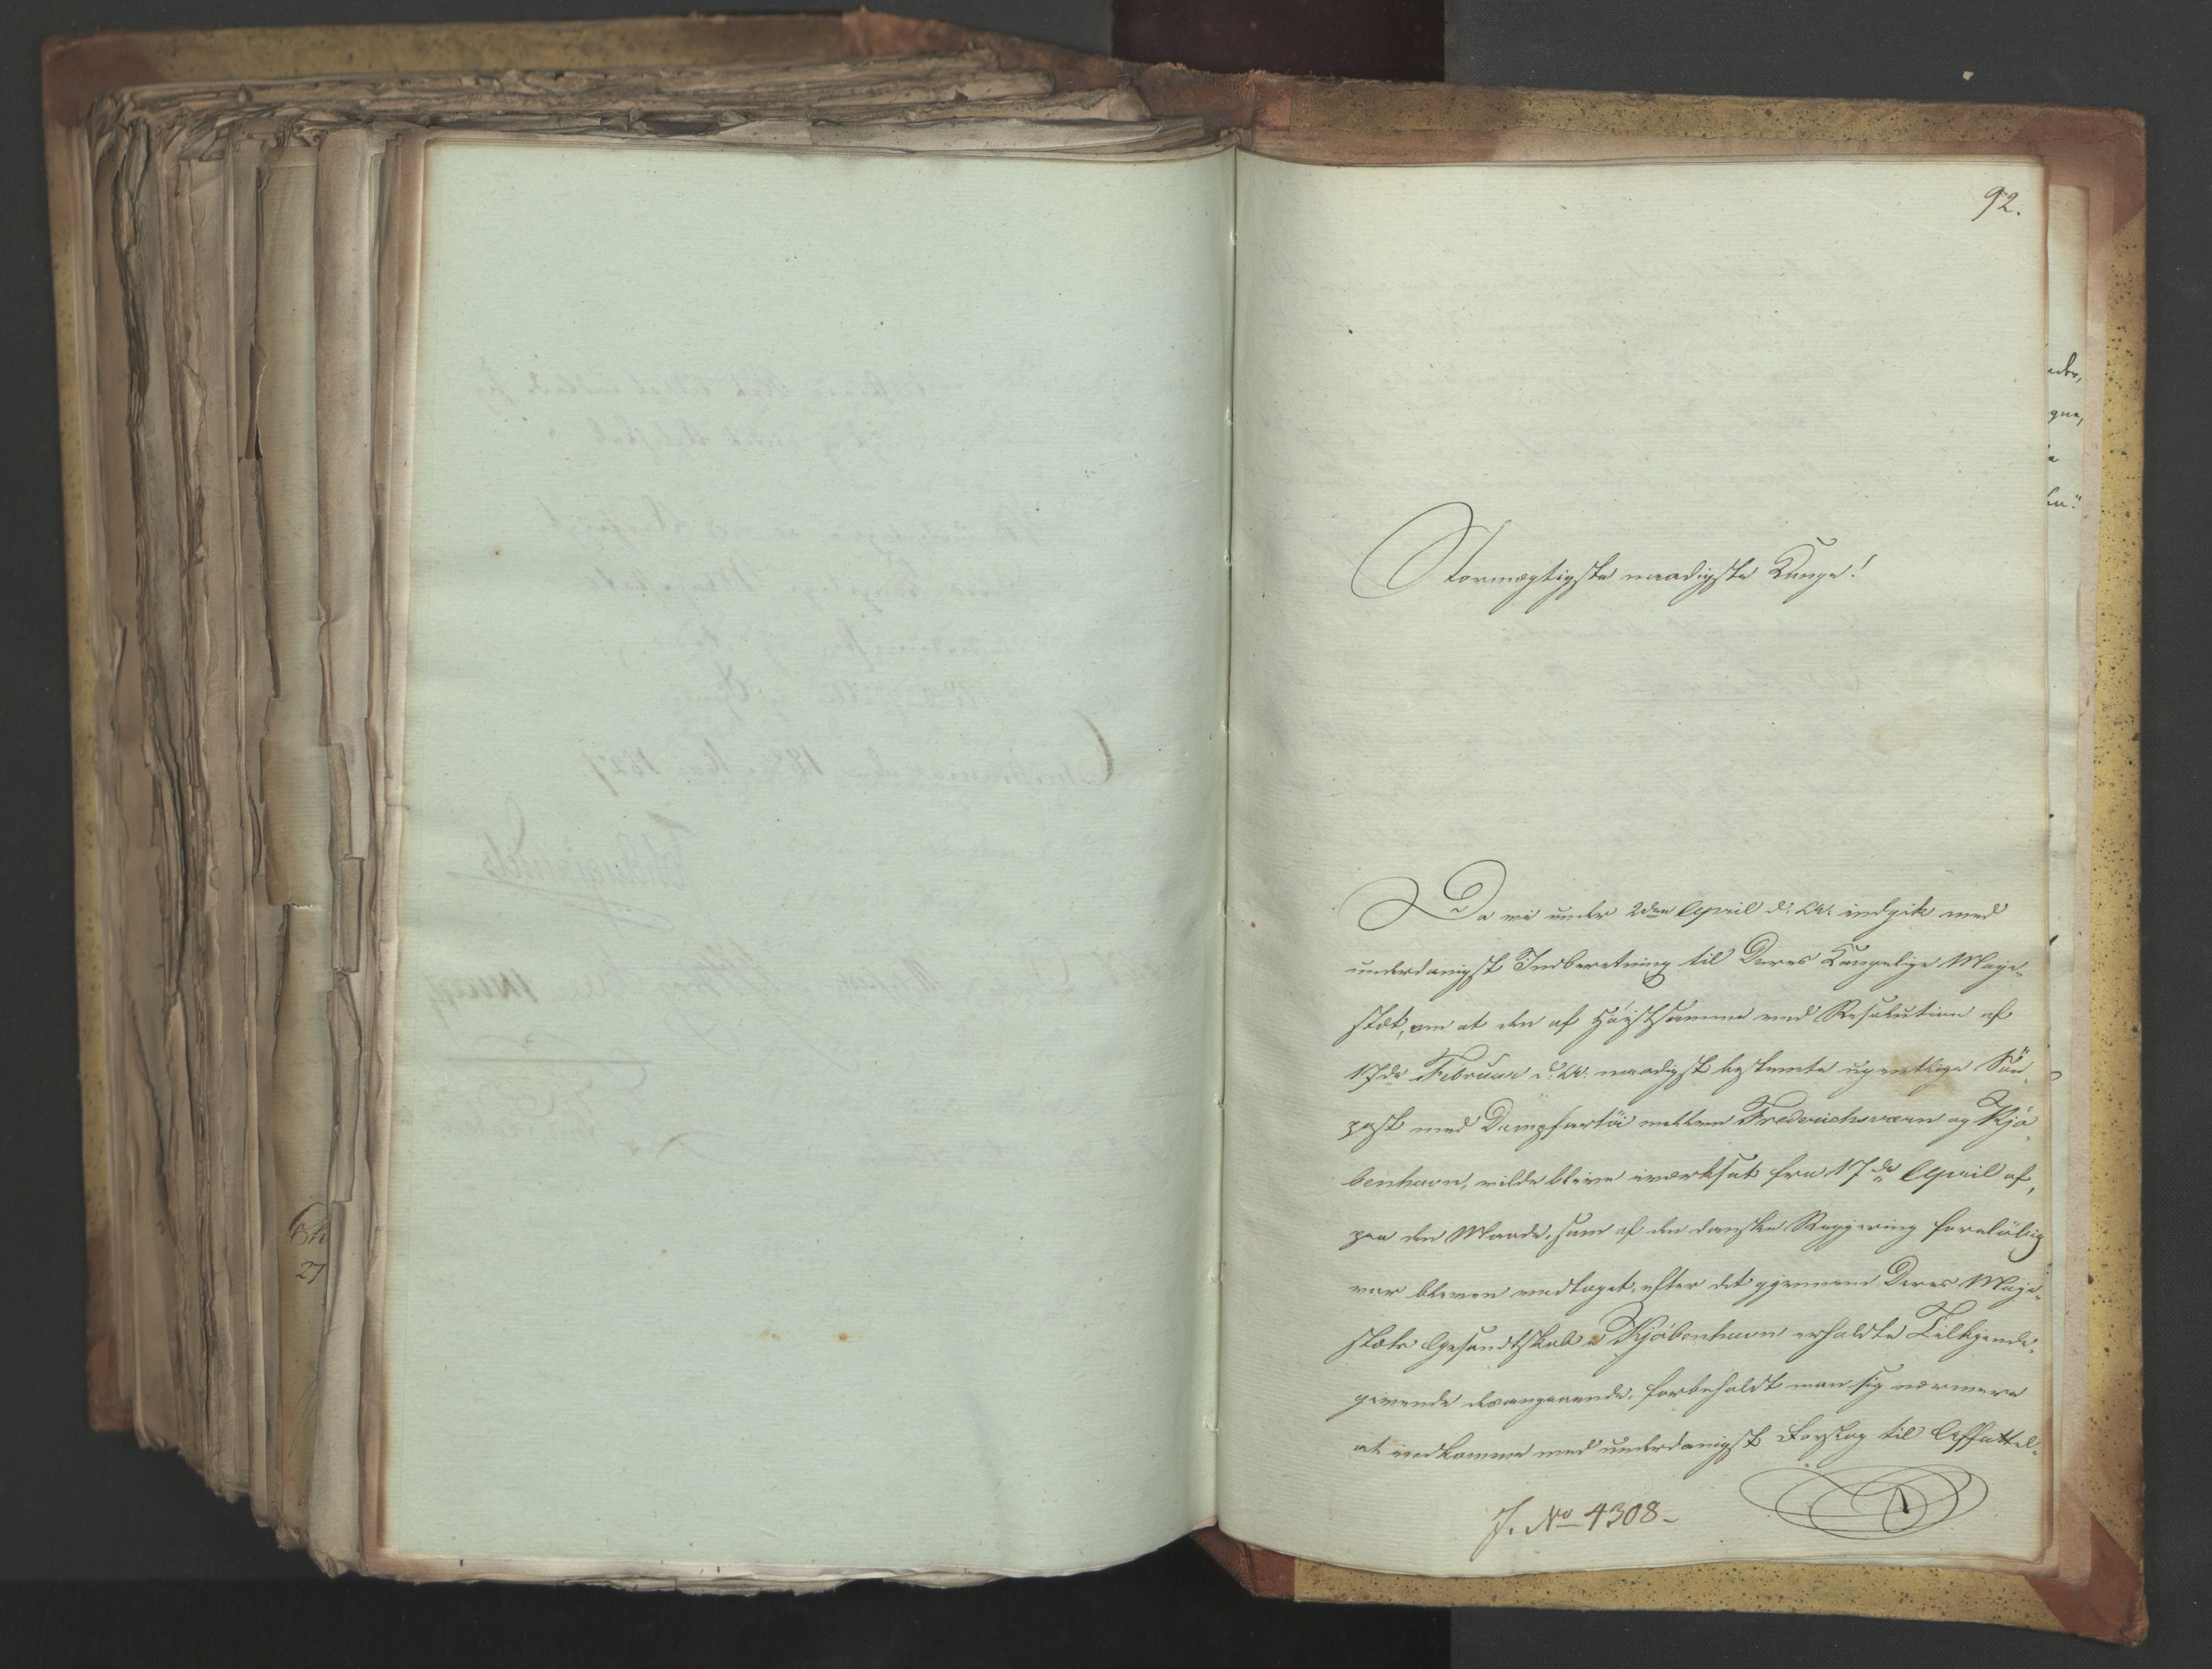 92.
Stormægtigste naadigste Konge!
Da vi under 2den April d: A: indgik med
underdanigst Indberetning til Deres Kongelige Maje-
stæt, om at den af Høistsamme ved Resolution af
17de Februar d: A: naadigst bestemte ugentlige Søe-
post med Dampfartöi mellem Frederichsværn og Kjø-
benhavn, vilde blive iværksat fra 17de April af,
paa den Maade, som af den danske Regjering foreløbig
var bleven vedtaget, efter det gjennem Deres Maje-
stæts Gesandtskab i Kjøbenhavn erholdte Tilkjende-
givende desangaaende, forbeholdt man sig nærmere
at indkomme med underdanigst Forslag til Affattel-
J. No 4308-
Ch
27